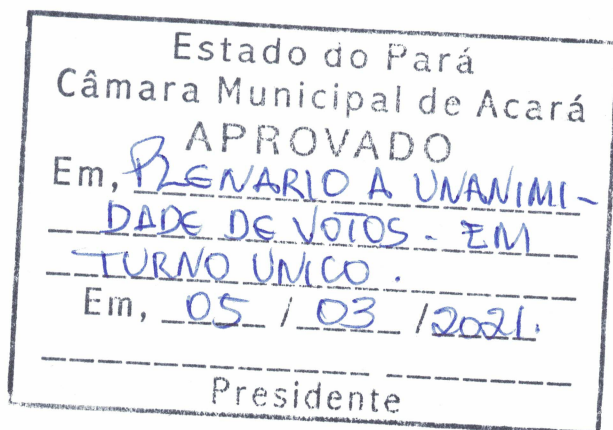 Estado do Pará
Câmara Municipal de Acará
APROVADO
Em, PLENARIO A UNANIMI-
DADE DE VOTOS - EM
TURNO UNICO.
Em, 05 / 03 / 2021.
Presidente